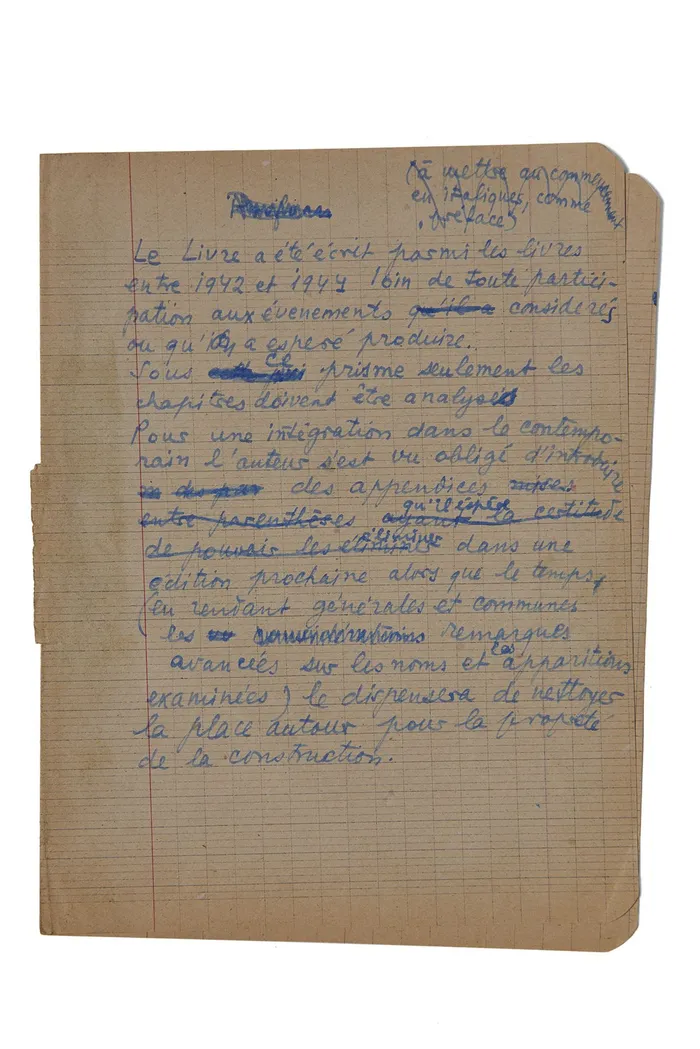 (à mettre au commencement
en italiques, comme
préface)
Préface
Le Livre a été écrit parmi les livres
entre 1942 et 1944 loin de toute partici-
pation aux évenements qu'il a considerés
ou qu'il a esperé produire.
Sous ce prisme seulement les
chapitres doivent être analysés
Pour une intégration dans le contempo-
rain l'auteur s'est vu obligé d'introduire
des appendices mises
qu'il espère
entre parenthèses ayant la certitude
éliminer
de pouvoir les éliminer dans une
edition prochaine alors que le temps,
(en rendant générales et communes
les remarques
avancées sur les noms et les apparitions
examinées) le dispensera de nettoyer
la place autour pour la propreté
de la construction.